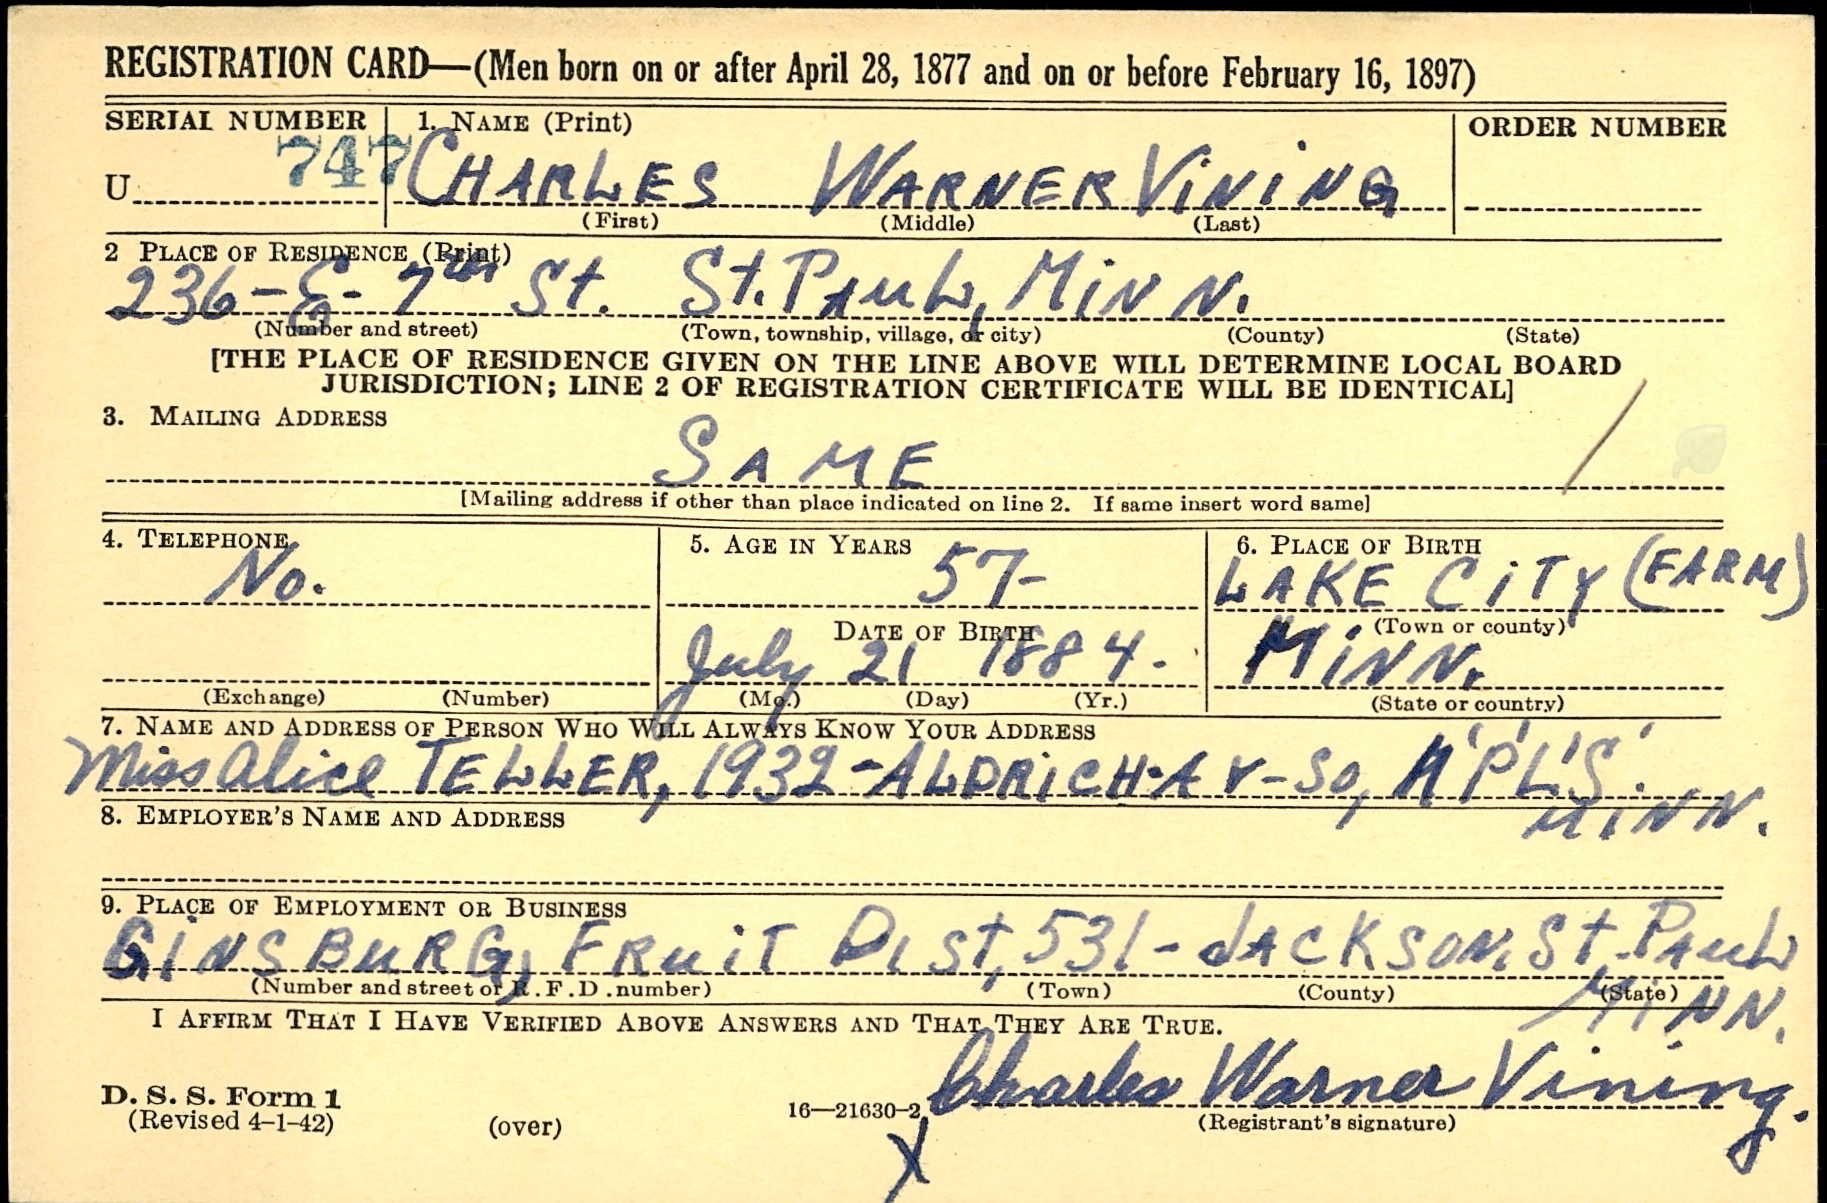 REGISTRATION CARD—(Men born on or after April 28, 1877 and on or before February 16, 1897)
SERIAL NUMBER 1. NAME (Print) ORDER NUMBER
U 747 CHARLES WARNER VINING
(First) (Middle) (Last)
2 PLACE OF RESIDENCE (Print)
236-E- 7th St. St. PAUL, MINN.
(Number and street) (Town, township, village, or city) (County) (State)
[THE PLACE OF RESIDENCE GIVEN ON THE LINE ABOVE WILL DETERMINE LOCAL BOARD
JURISDICTION; LINE 2 OF REGISTRATION CERTIFICATE WILL BE IDENTICAL]
3. MAILING ADDRESS
SAME
[Mailing address if other than place indicated on line 2. If same insert word same]
4. TELEPHONE 5. AGE IN YEARS 6. PLACE OF BIRTH
No. 57- LAKE CITY (FARM)
DATE OF BIRTH (Town or county)
July 21 1884. MINN.
(Exchange) (Number) (Mo.) (Day) (Yr.) (State or country)
7. NAME AND ADDRESS OF PERSON WHO WILL ALWAYS KNOW YOUR ADDRESS
Miss Alice TELLER, 1932-ALDRICH-AV-SO, M'P'L'S'.
MINN.
8. EMPLOYER'S NAME AND ADDRESS
9. PLACE OF EMPLOYMENT OR BUSINESS
GINSBURG, FRUIT DIST, 531-JACKSON, St. PAUL
MINN.
(Number and street or R.F.D. number) (Town) (County) (State)
I AFFIRM THAT I HAVE VERIFIED ABOVE ANSWERS AND THAT THEY ARE TRUE.
Charles Warner Vining.
D. S. S. Form 1
(Revised 4-1-42) (over) 16—21630-2 (Registrant's signature)
X